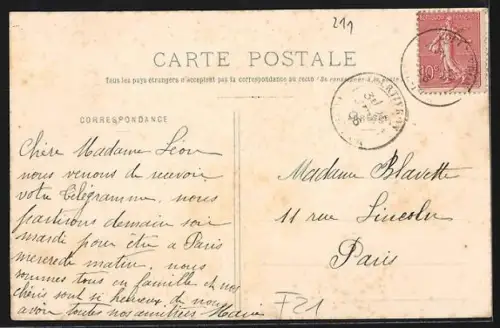 211
CARTE POSTALE
Tous les pays étrangers n'acceptent pas la correspondance au recto
CORRESPONDANCE
10c
Chère Madame Leon
nous venons de recevoir
votre télégramme, nous
partirons demain soir
mardi pour être a Paris
mercredi matin, nous
sommes tous en famille et nos
chéris sont si heureux de nous
avoir toutes nos amitiées Marie
Madame Blavette
11 rue Lincoln
Paris
F21